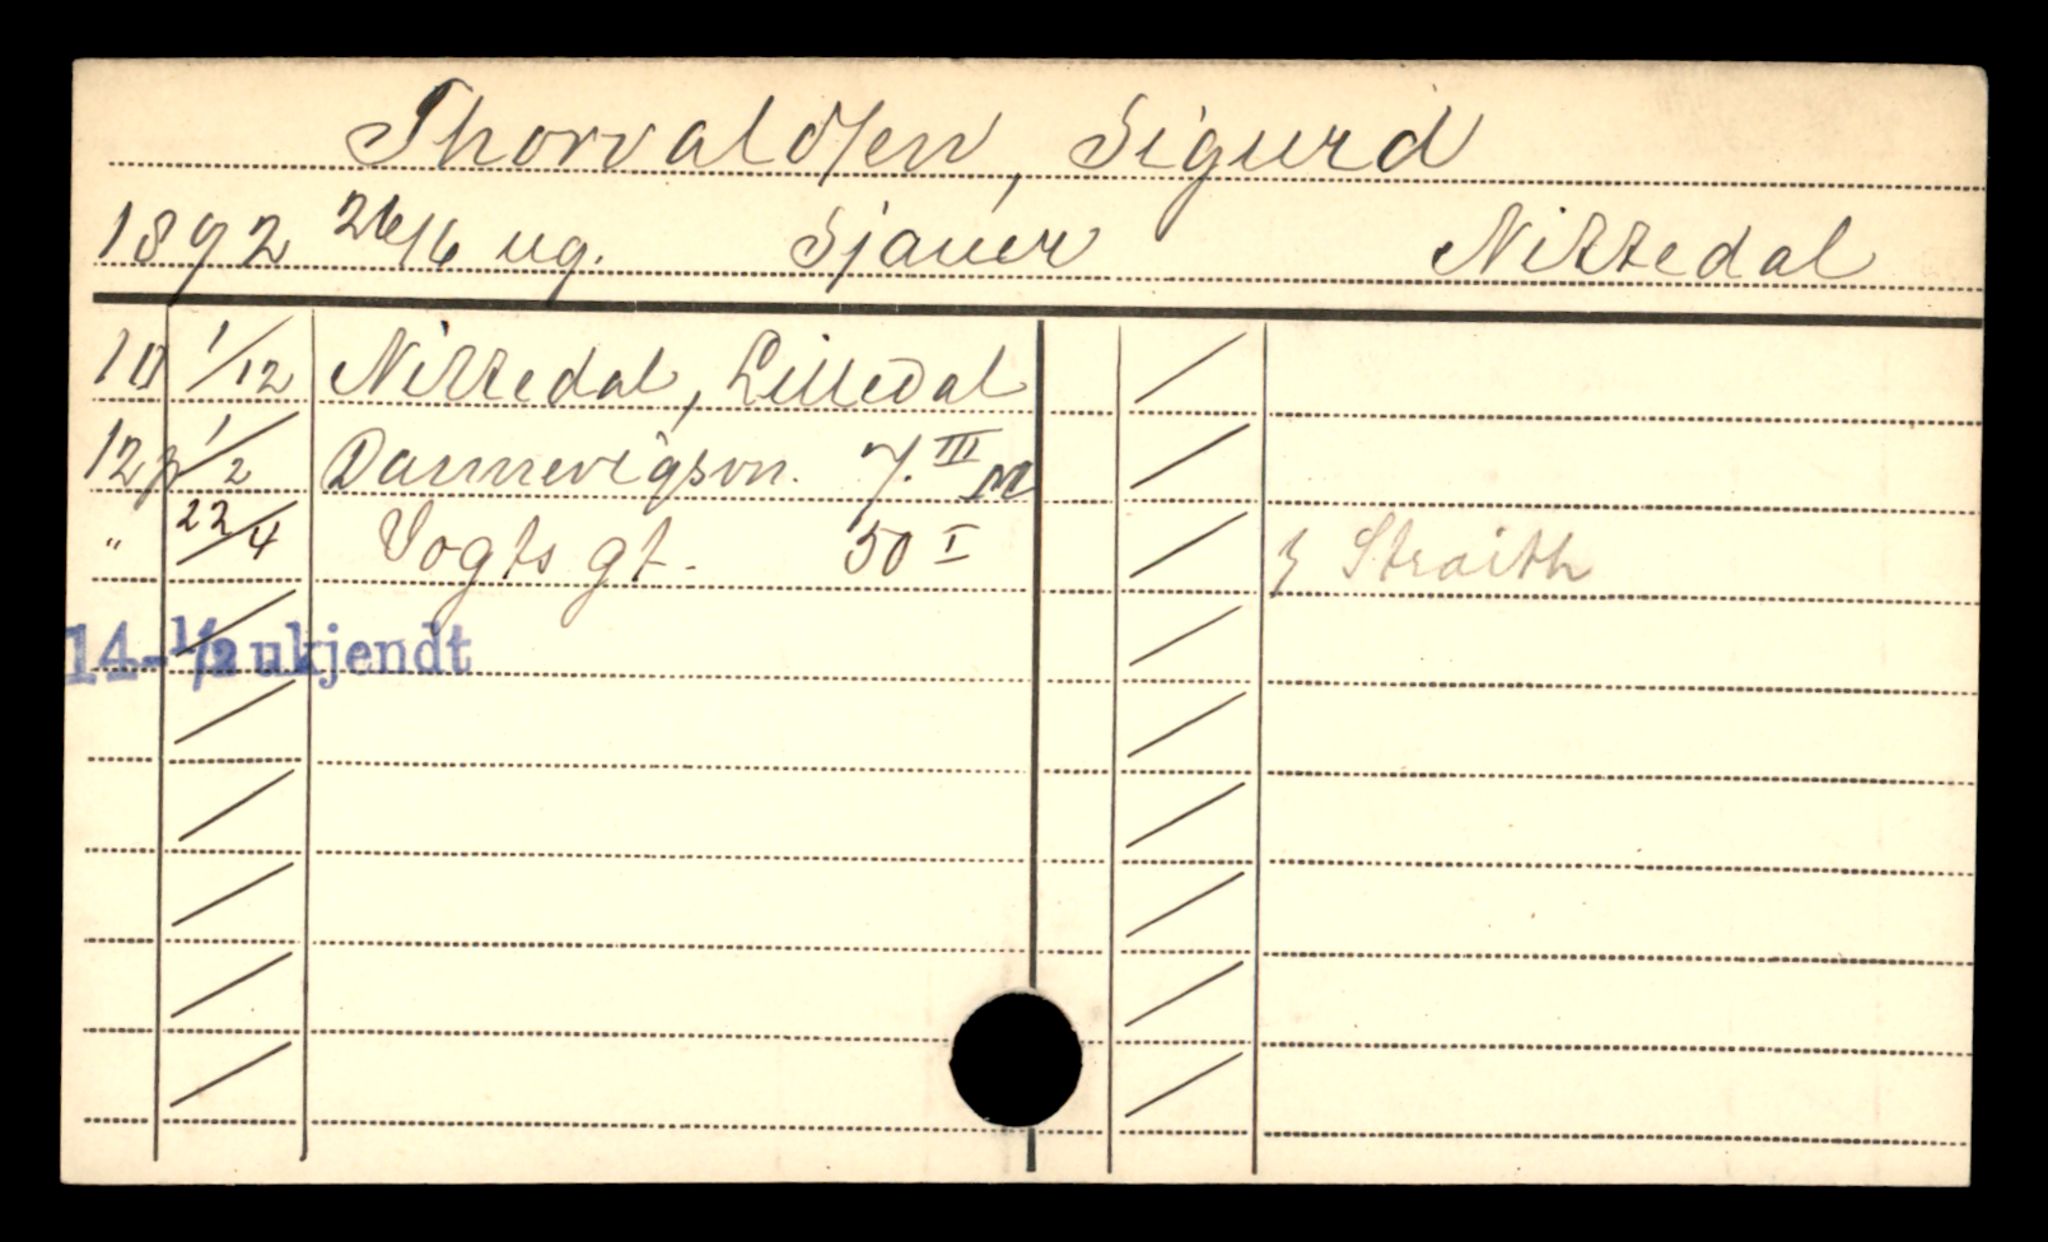 Thorvaldsen, Sigurd
1892 26/6 ug. Sjauer Nittedal
10 1/12 Nittedal, Lilledal
12 1/2 Dannevigsvn. 7. III
" 22/4 Vogts gt. 50 I
Straith
14 - 1/12 ukjendt